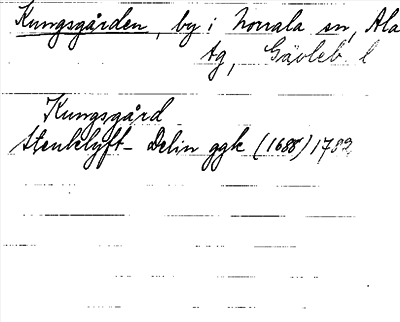 Kungsgården, by i Norrala sn, Ala
tg, Gävleb l
Kungsgård
Stenklyft- Delin ggk (1688) 1782